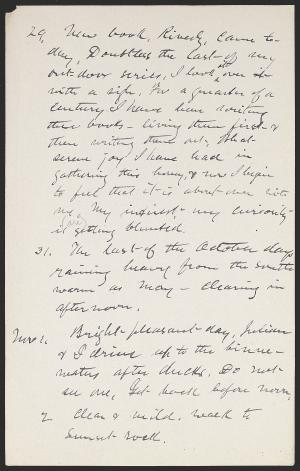 29. New book, Riverby, came to-
day, Doubtless the last of my
out-door series, I look over it
with a sigh, For a quarter of a
century I have been writing
these books – living them first &
then writing them out, What
serene joy I have had in
gathering this honey, & now I begin
to feel that it is about over with
me, My interest – my curiosity
is getting blunted.
31. The last of the October days
raining heavy from the south
warm as May – clearing in
afternoon.
Nov 1. Bright pleasant day, Julian
& I drive up to the binne-
waters after ducks. Do not
see one, Get back before noon,
2 Clear & mild. walk to
Sunset rock.